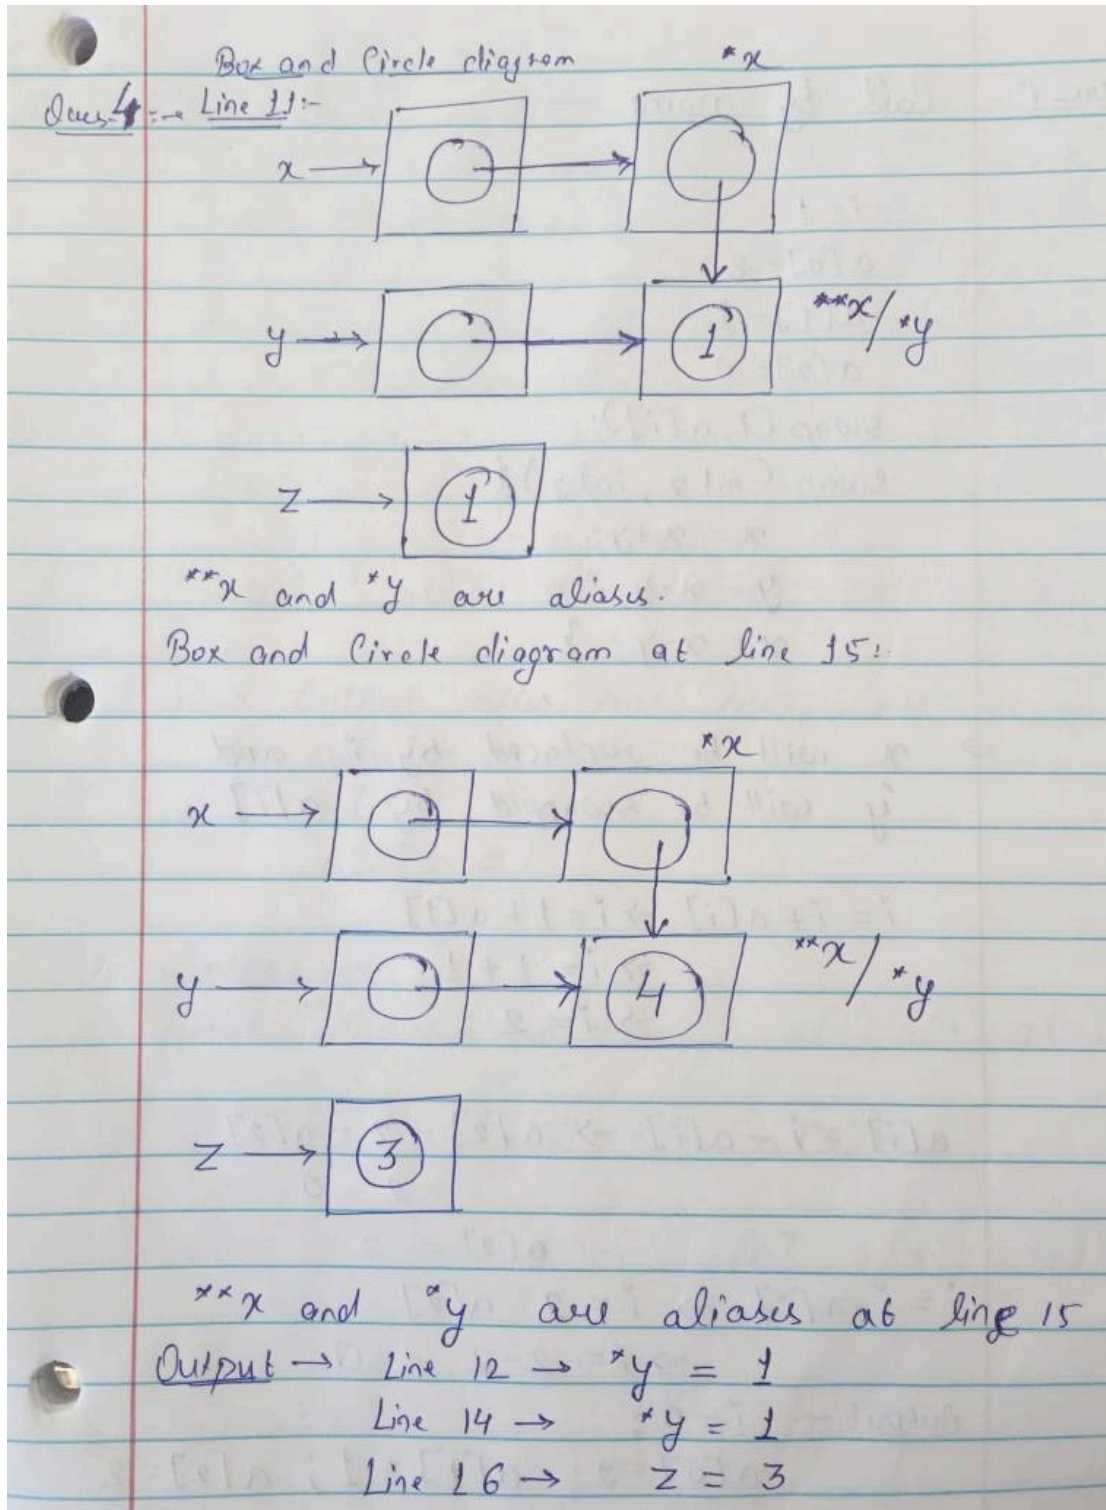 Box and Circle diagram
Ques-4:→ Line 11:-
*x
x →
y →
1
**x/*y
z →
1
**x and *y are aliases.
Box and Circle diagram at line 15:
*x
x →
y →
4
**x/*y
z →
3
**x and *y are aliases at line 15
Output → Line 12 → *y = 1
Line 14 → *y = 1
Line 16 → z = 3